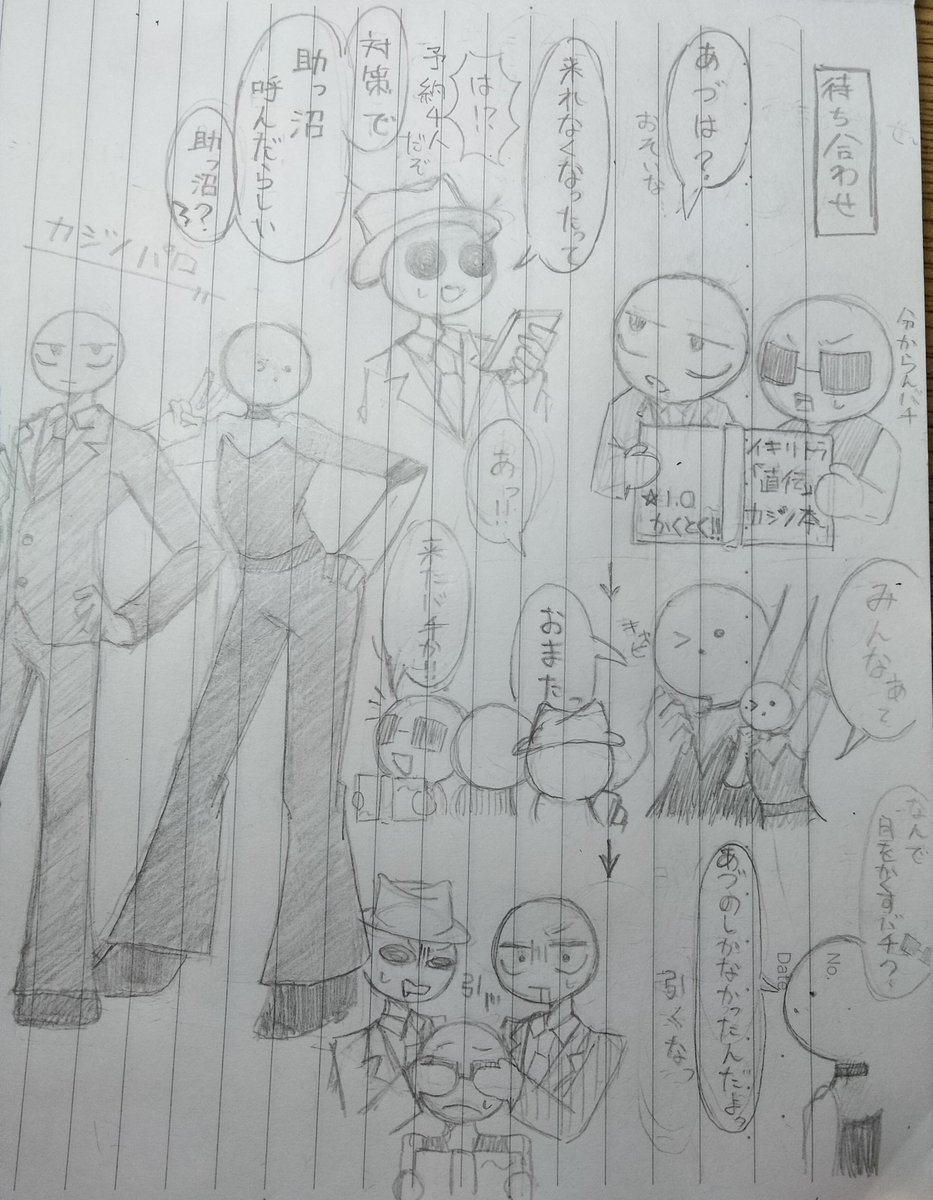 待ち合わせ
あづは？
おそいな
来れなくなったって
は!?
予約4人
だぞ
対策で
助っ沼
呼んだらしい
助っ沼
カジノパロ
分からんバチ
☆1.0
かくとく!!
イキリトラ
「直伝」
カジノ本
あっ!!
みんなぁて
おまたっ
来たバチか!!
なんで
目をかくすバチ？
あづのしかなかったんだよっ
引くなっ
引
No.
Date